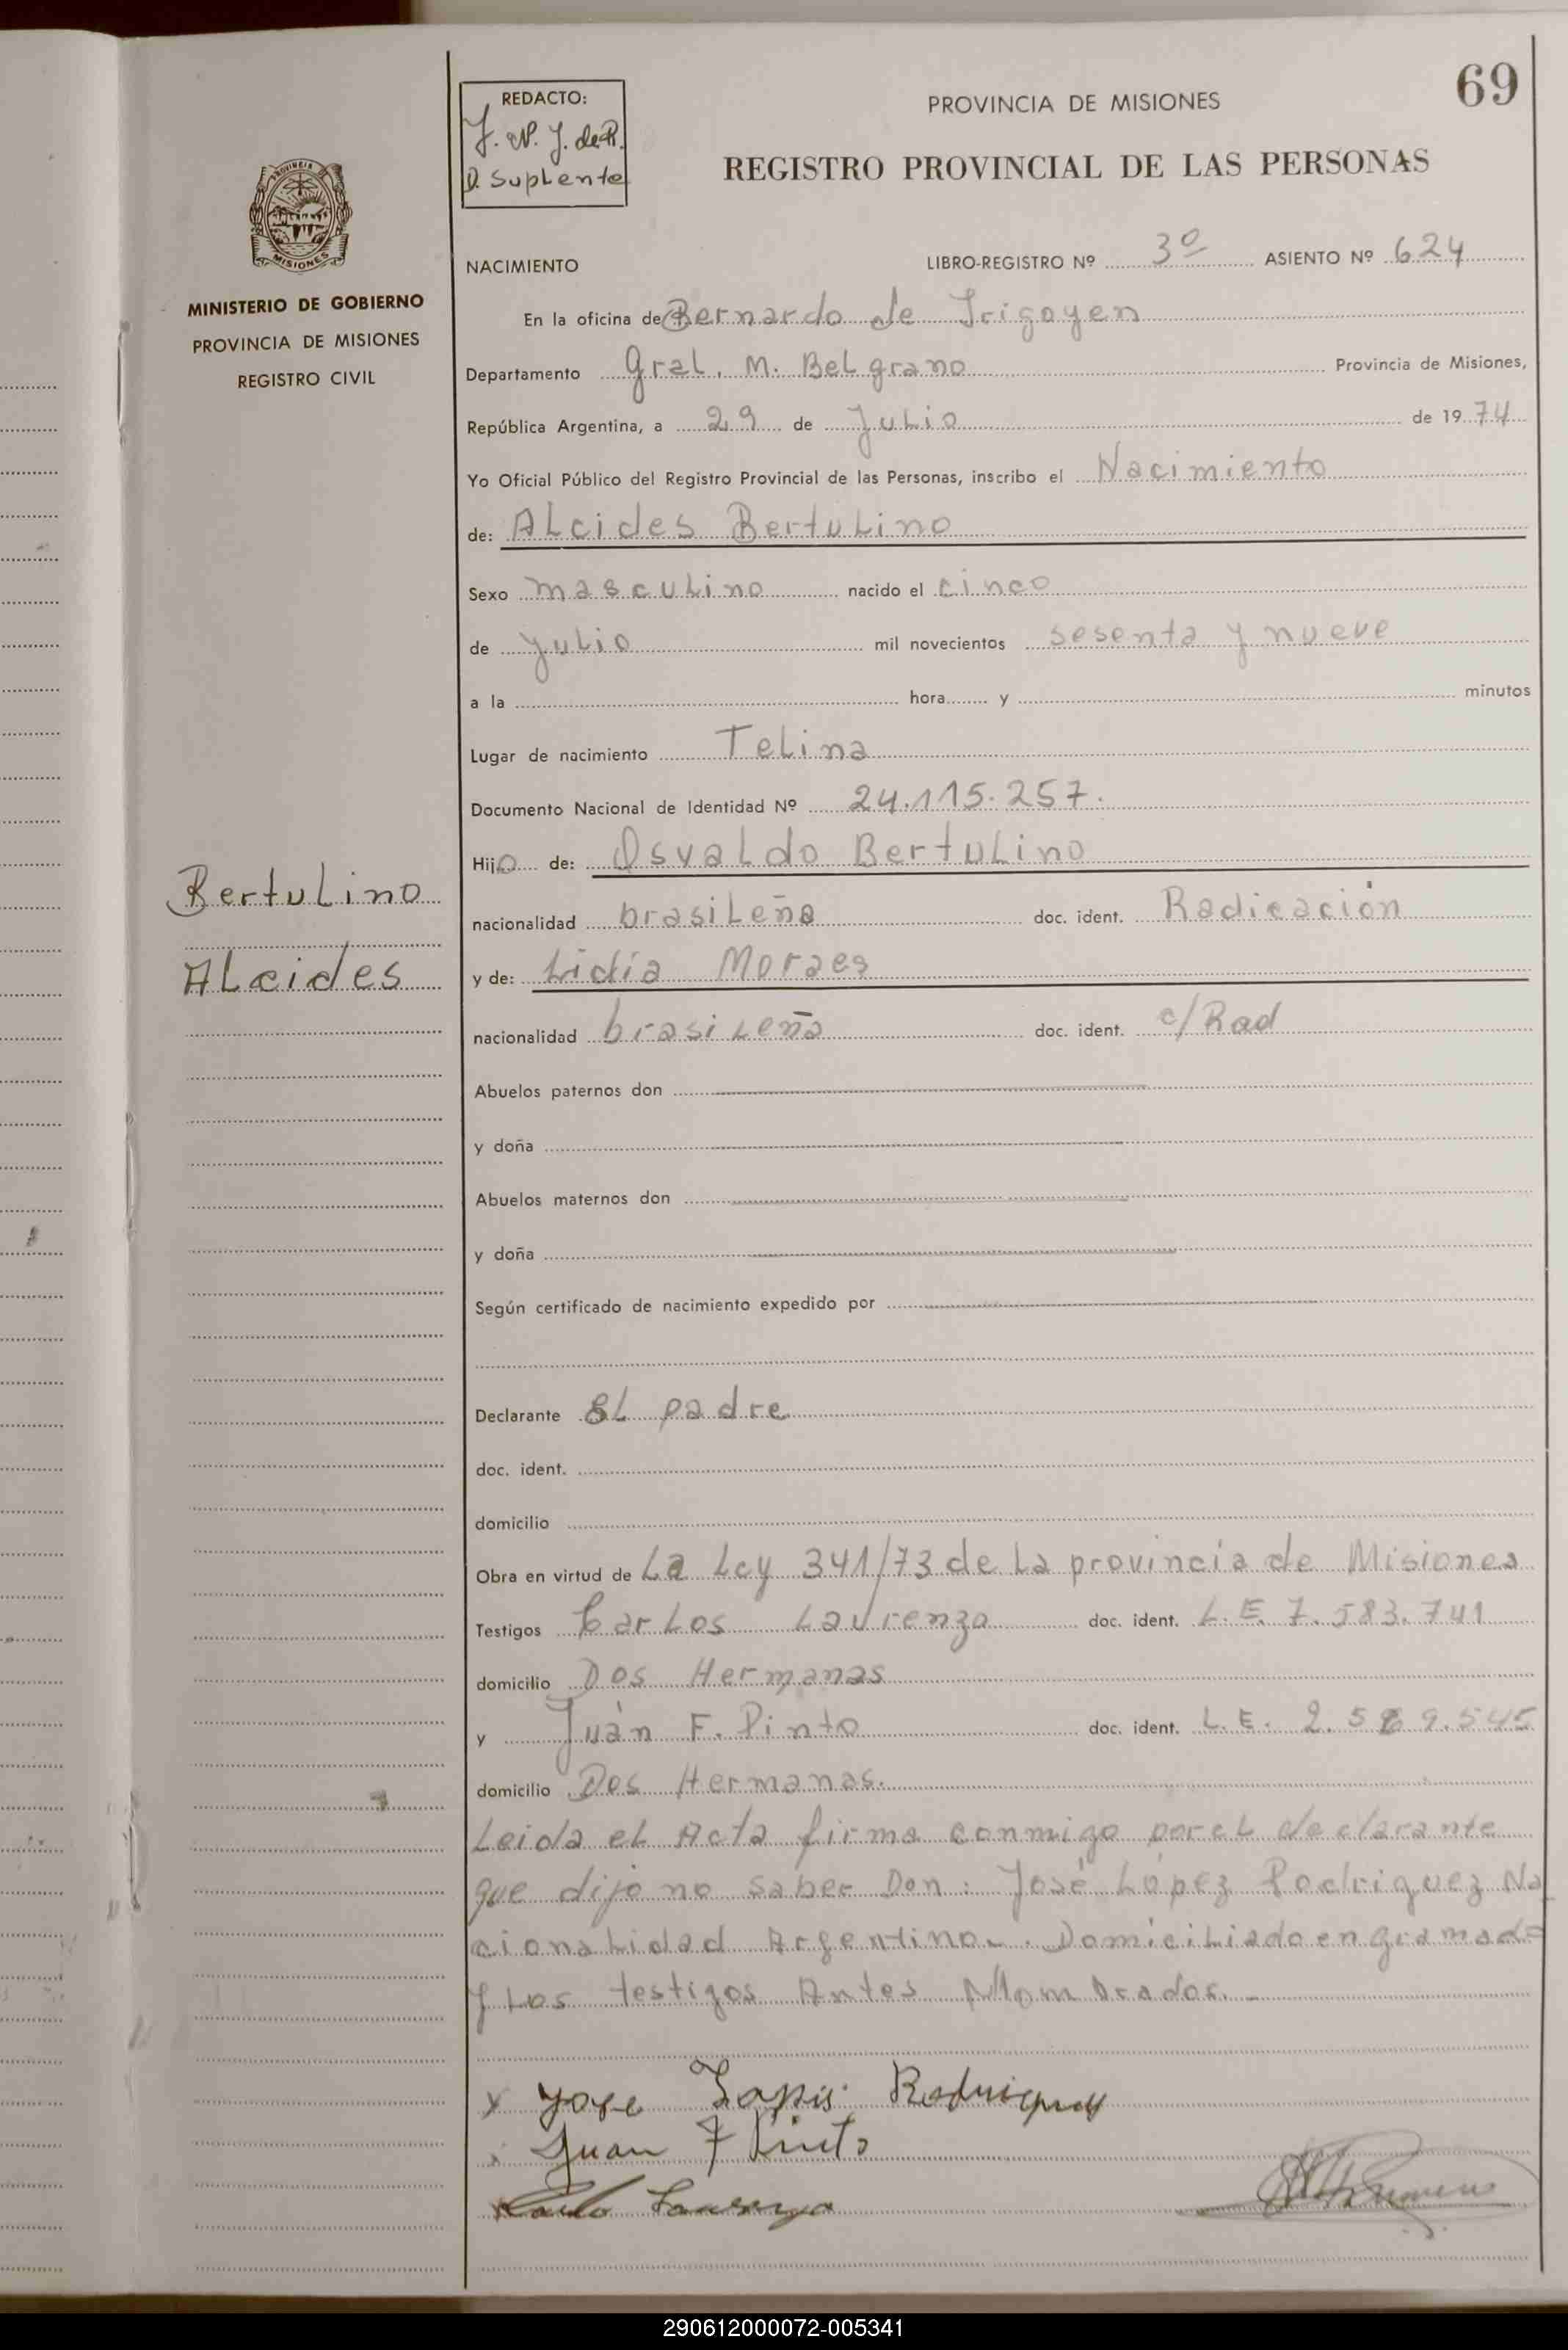 69
REDACTO:
J. N. J. de R.
D. Suplente
PROVINCIA DE MISIONES
REGISTRO PROVINCIAL DE LAS PERSONAS
PROVINCIA
MISIONES
MINISTERIO DE GOBIERNO
PROVINCIA DE MISIONES
REGISTRO CIVIL
Bertulino
Alcides
NACIMIENTO LIBRO-REGISTRO Nº 3º ASIENTO Nº 624
En la oficina de Bernardo de Irigoyen
Departamento Gral. M. Belgrano Provincia de Misiones,
República Argentina, a 29 de Julio de 1974
Yo Oficial Público del Registro Provincial de las Personas, inscribo el Nacimiento
de: Alcides Bertulino
Sexo masculino nacido el cinco
de julio mil novecientos sesenta y nueve
a la hora y minutos
Lugar de nacimiento Telina
Documento Nacional de Identidad Nº 24.115.257.
Hijo de: Osvaldo Bertulino
nacionalidad brasileña doc. ident. Radicación
y de: Lidía Moraes
nacionalidad brasileña doc. ident. c/Rad
Abuelos paternos don
y doña
Abuelos maternos don
y doña
Según certificado de nacimiento expedido por
Declarante El padre
doc. ident.
domicilio
Obra en virtud de La Ley 341/73 de la provincia de Misiones
Testigos Carlos Laurenzo doc. ident. L.E. 7.583.741
domicilio Dos Hermanas
y Juán F. Pinto doc. ident. L.E. 2.589.545
domicilio Dos Hermanas.
Leida el Acta firma conmigo por el declarante
que dijo no saber Don: José López Rodriguez Na
cionalidad Argentino. Domiciliado en gramado
y Los testigos Antes Nombrados.
x Jose Lopis Rodriguez
x Juan F Pinto
x Carlo Laurenzo
290612000072-005341